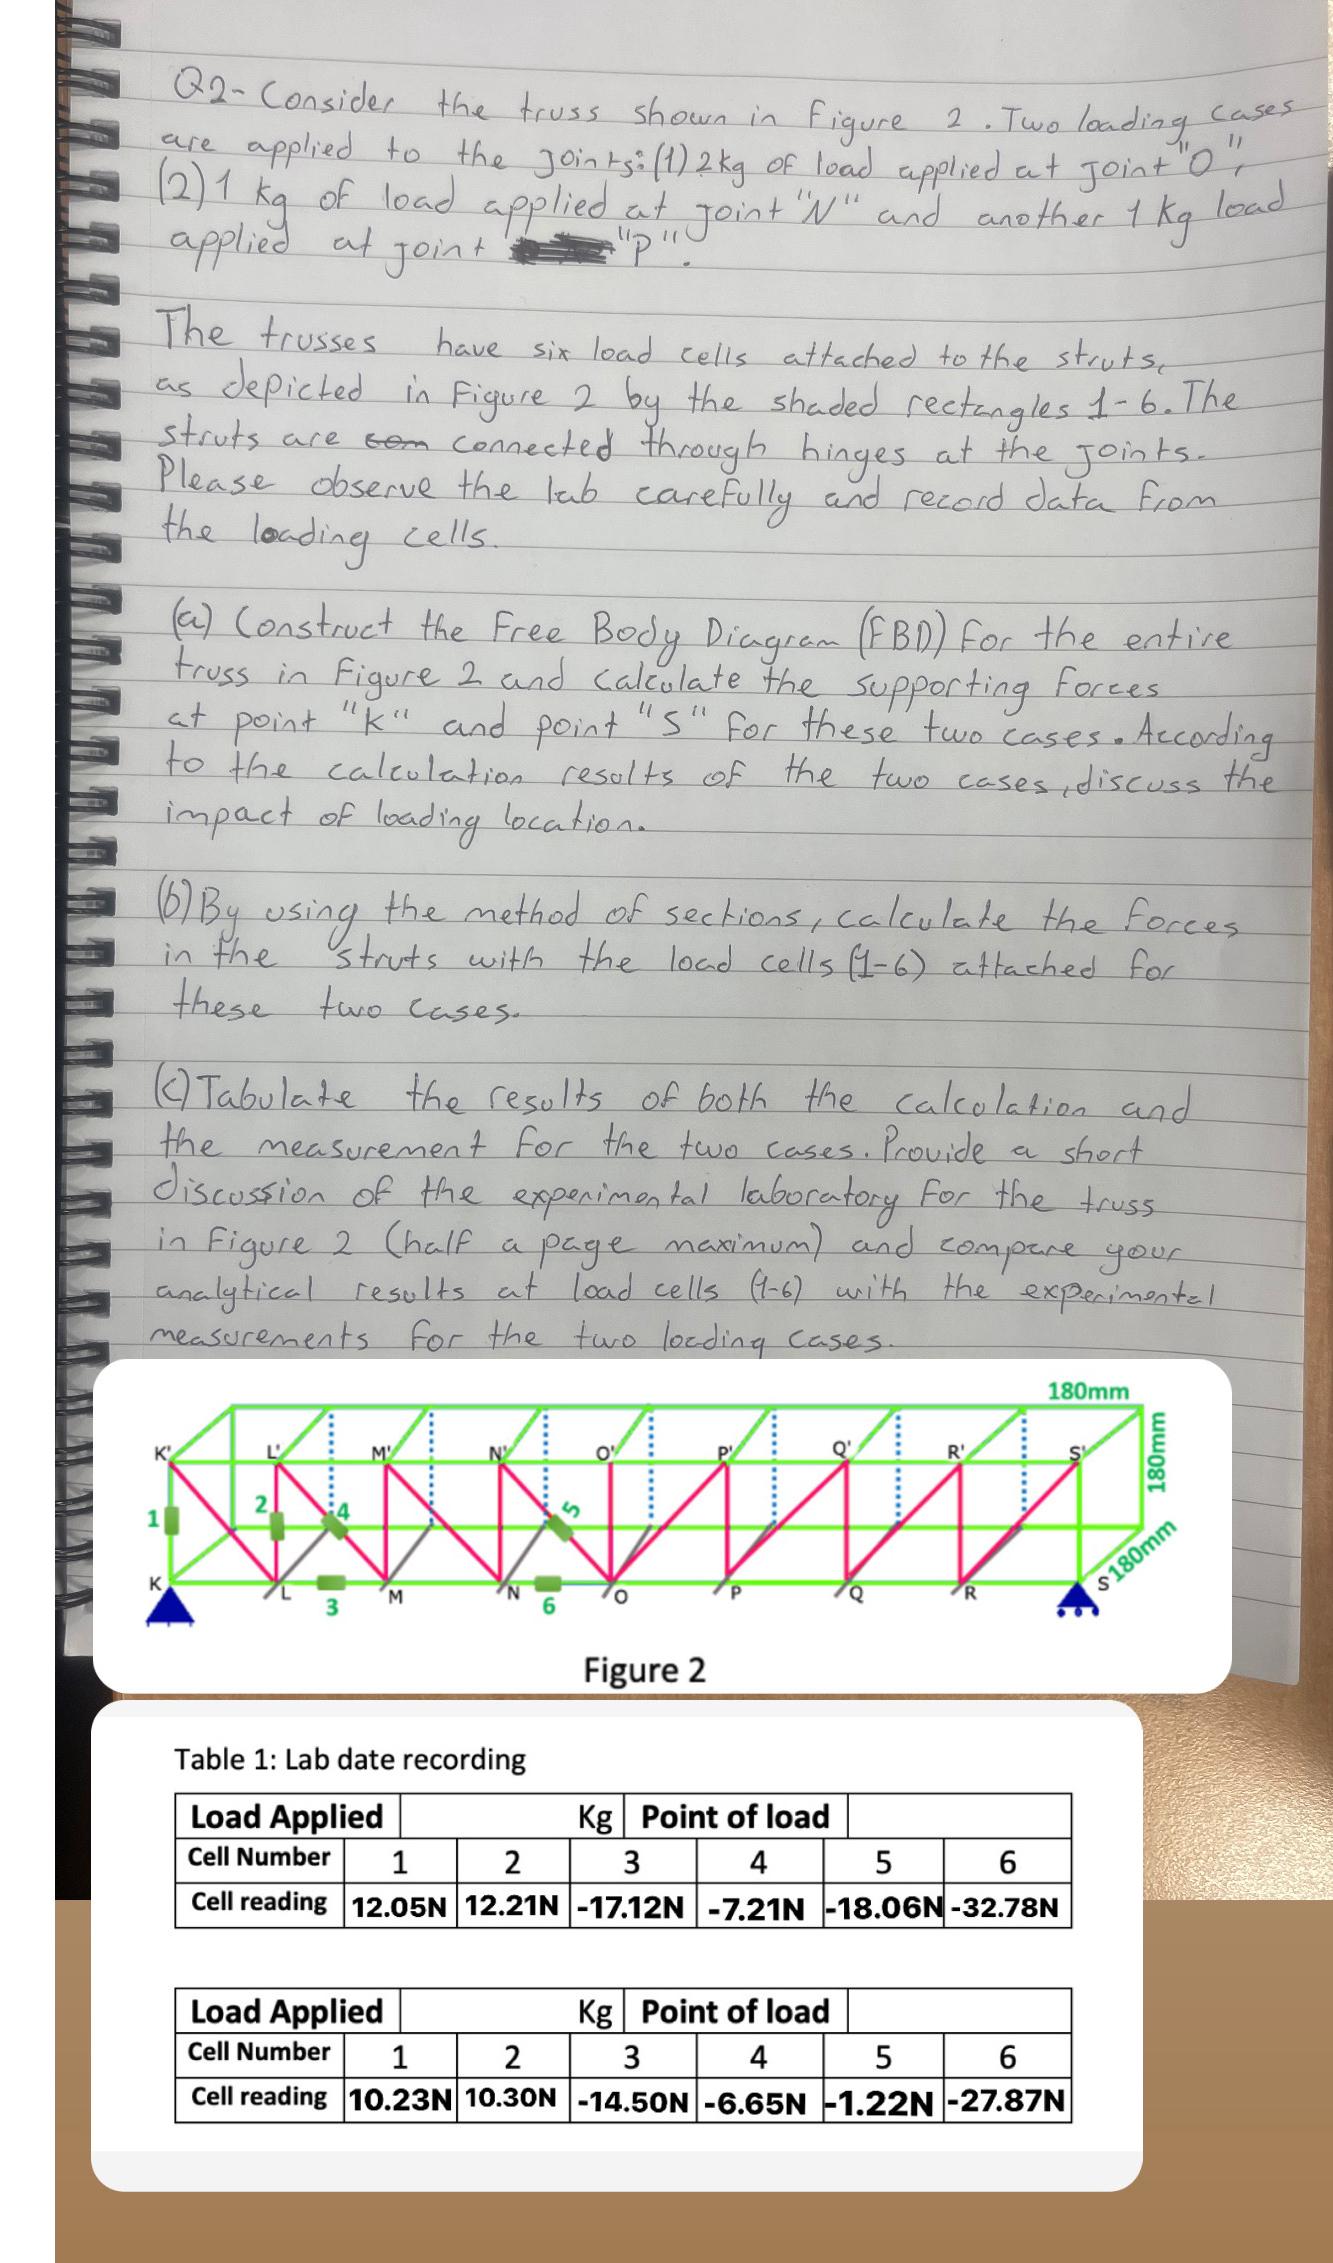 Q2- Consider the truss shown in Figure 2. Two loading cases
are applied to the joints: (1) 2 kg of load applied at joint "O",
(2) 1 kg of load applied at joint "N" and another 1 kg load
applied at joint "P".
The trusses have six load cells attached to the struts,
as depicted in Figure 2 by the shaded rectangles 1-6. The
struts are com connected through hinges at the joints.
Please observe the lab carefully and record data from
the loading cells.
(a) Construct the Free Body Diagram (FBD) for the entire
truss in Figure 2 and calculate the supporting forces
at point "K" and point "S" for these two cases. According
to the calculation results of the two cases, discuss the
impact of loading location.
(b) By using the method of sections, calculate the forces
in the struts with the load cells (1-6) attached for
these two cases.
(c) Tabulate the results of both the calcolation and
the measurement for the two cases. Provide a short
discussion of the experimental laboratory for the truss
in Figure 2 (half a page maximum) and compare your
analytical results at load cells (1-6) with the experimental
measurements for the two loading cases.
180mm
K' L' M' N' O' P' Q' R' S' 180mm
1 2 4 5
K L M N O P Q R S 180mm
3 6
Figure 2
Table 1: Lab date recording
Load Applied Kg Point of load
Cell Number 1 2 3 4 5 6
Cell reading 12.05N 12.21N -17.12N -7.21N -18.06N -32.78N
Load Applied Kg Point of load
Cell Number 1 2 3 4 5 6
Cell reading 10.23N 10.30N -14.50N -6.65N -1.22N -27.87N